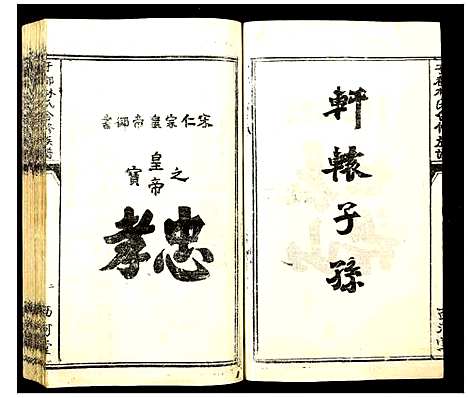 軒轅子孫
宋仁宗皇帝御書
皇帝之寶
忠孝
西河堂